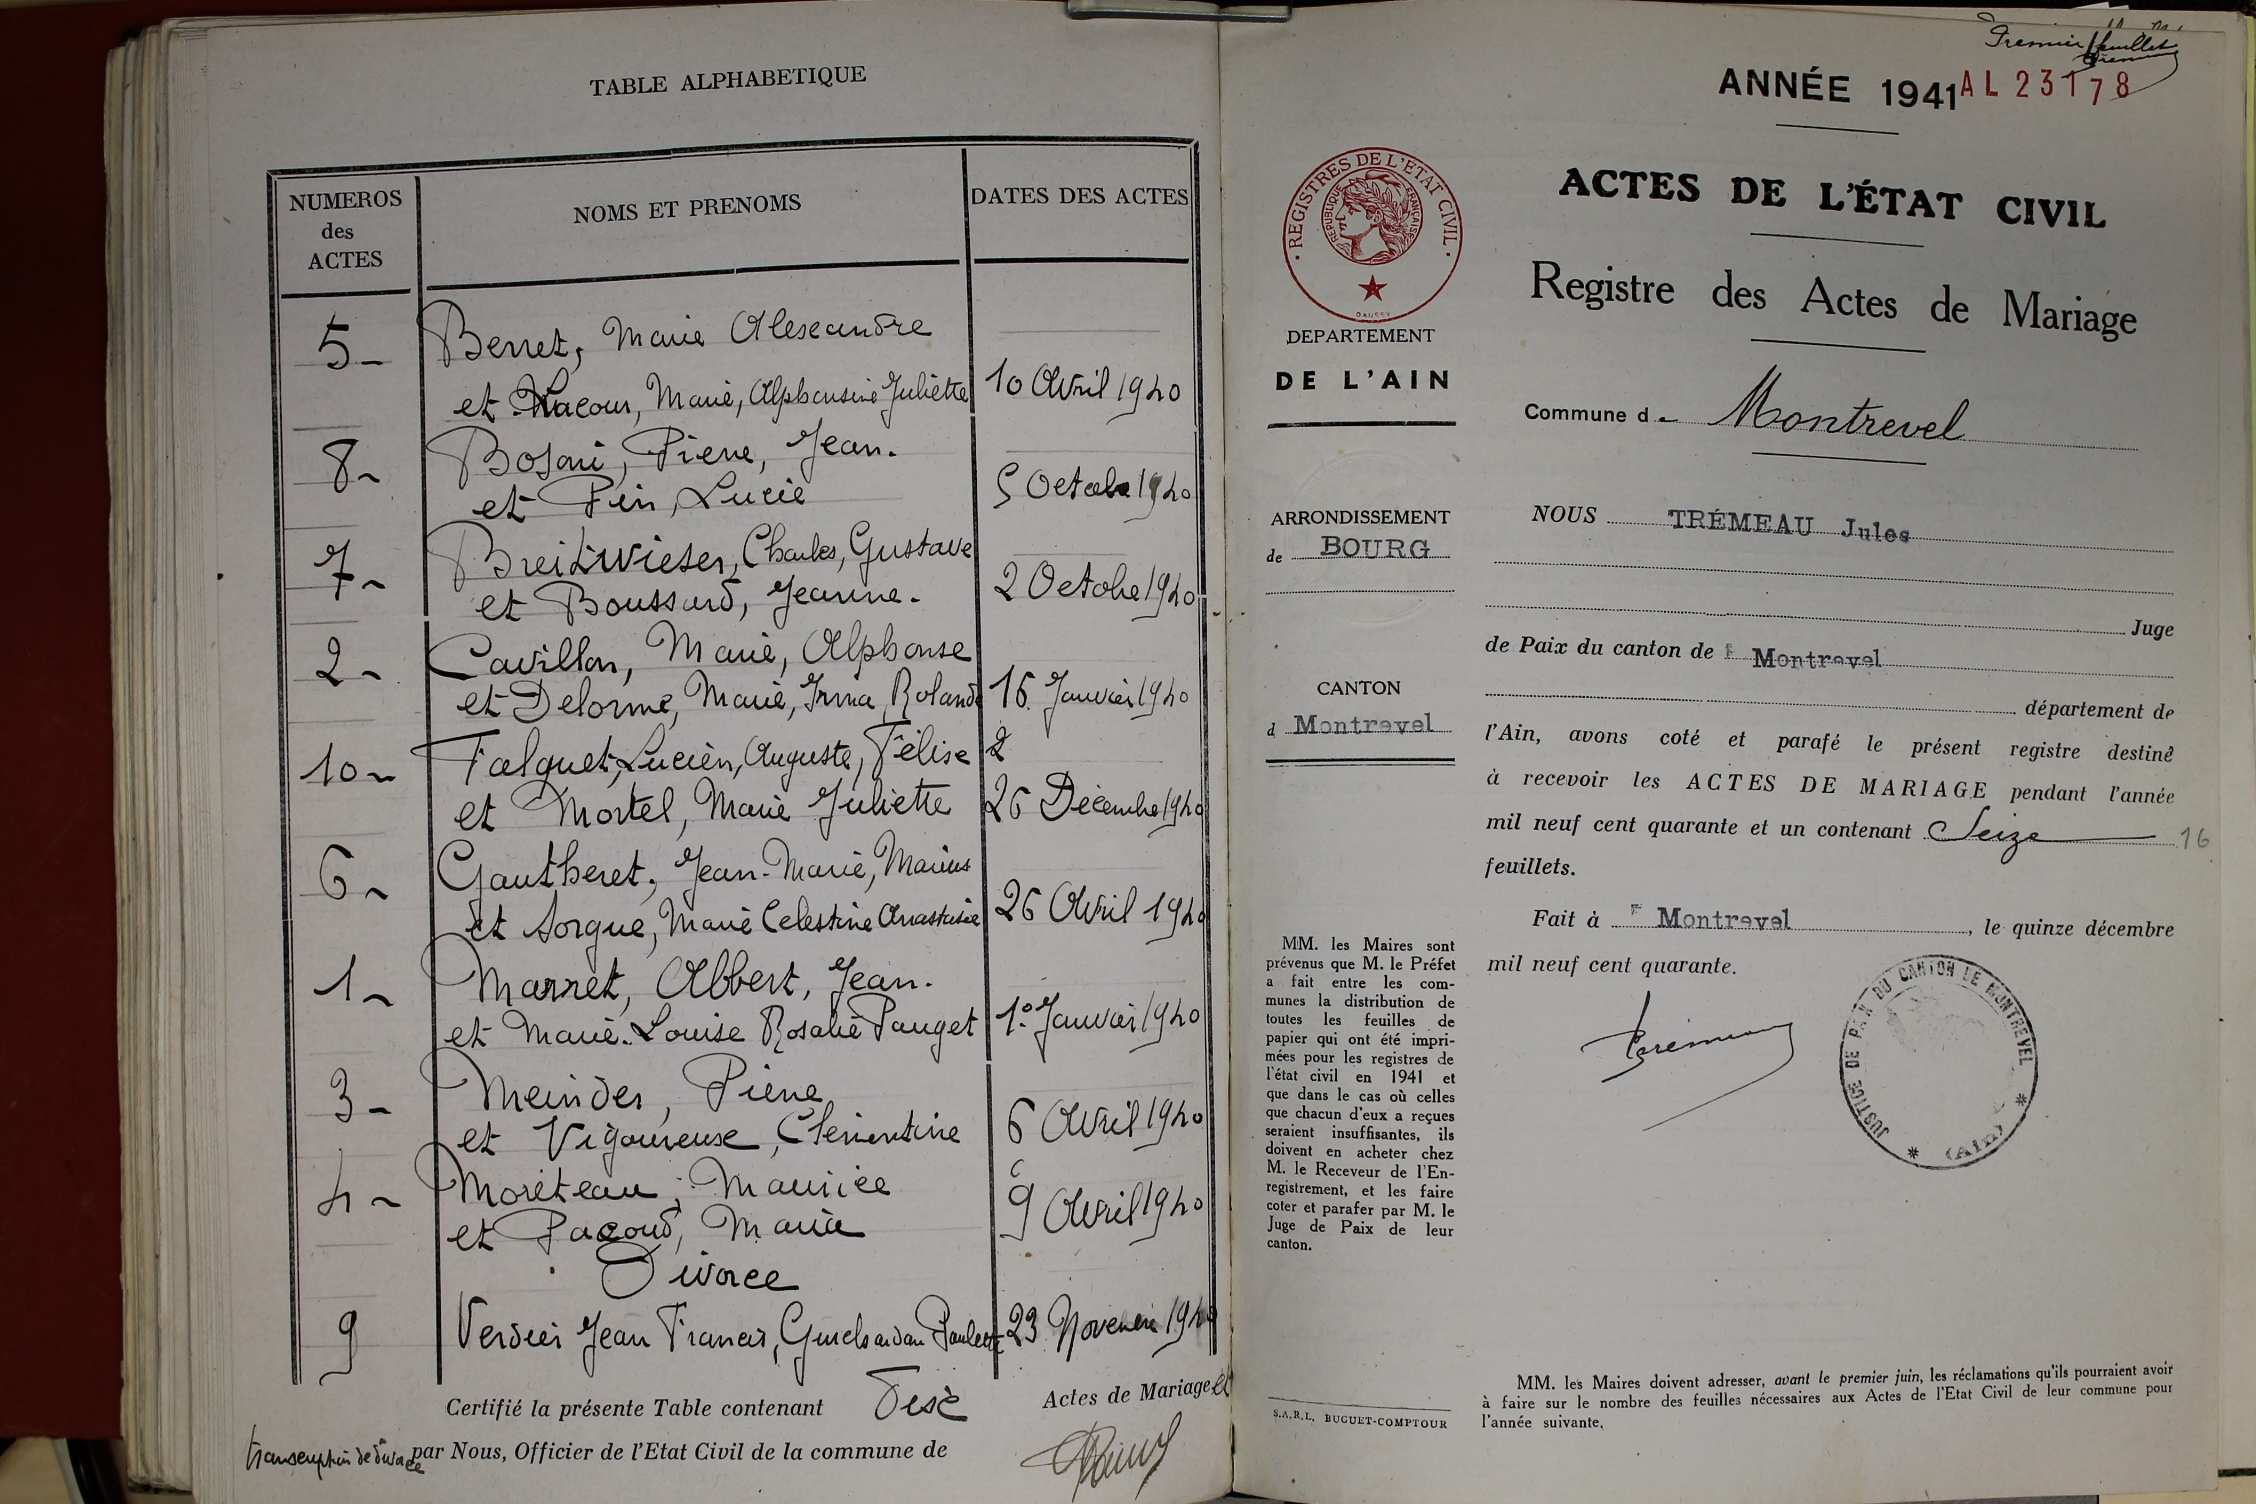 TABLE ALPHABETIQUE
NUMEROS
des
ACTES
NOMS ET PRENOMS
DATES DES ACTES
5- Berret, Marie Alexandre
et Lacour, Marie, Alphonsine Juliette 10 Avril 1940
8- Bosoni, Pierre, Jean.
et Pin, Lucie 5 Octobre 1940
7- Breitwieser, Charles, Gustave
et Boussard, Jeanne. 2 Octobre 1940
2- Cavillon, Marie, Alphonse
et Delorme, Marie, Irma Rolande 16 Janvier 1940
10- Falquet, Lucien, Auguste, Félise 2
et Mortel, Marie Juliette 26 Décembre 1940
6- Gautheret, Jean-Marie, Marius
et Sorgue, Marie Celestine Anastasie 26 Avril 1940
1- Marret, Albert, Jean.
et Marie-Louise Rosalie Pauget 1º Janvier 1940
3- Meinder, Pierre
et Vigoureuse, Clementine 6 Avril 1940
4- Moréteau, Maurice
et Pacoud, Maria 9 Avril 1940
Divorce
9 Verdier Jean Francis, Paulette 23 Novembre 1940
Certifié la présente Table contenant Actes de Mariage et
transcription de divorce par Nous, Officier de l'Etat Civil de la commune de
Premier feuillet
ANNÉE 1941 AL 23178
REGISTRES DE L'ÉTAT CIVIL
RÉPUBLIQUE FRANÇAISE
DAUSSY
DEPARTEMENT
DE L'AIN
ARRONDISSEMENT
de BOURG
CANTON
d Montrevel
MM. les Maires sont
prévenus que M. le Préfet
a fait entre les com-
munes la distribution de
toutes les feuilles de
papier qui ont été impri-
mées pour les registres de
l'état civil en 1941 et
que dans le cas où celles
que chacun d'eux a reçues
seraient insuffisantes, ils
doivent en acheter chez
M. le Receveur de l'En-
registrement, et les faire
coter et parafer par M. le
Juge de Paix de leur
canton.
S.A.R.L. BUGUET-COMPTOUR
ACTES DE L'ÉTAT CIVIL
Registre des Actes de Mariage
Commune de Montrevel
NOUS TRÉMEAU Jules
Juge
de Paix du canton de Montrevel
département de
l'Ain, avons coté et parafé le présent registre destiné
à recevoir les ACTES DE MARIAGE pendant l'année
mil neuf cent quarante et un contenant Seize 16
feuillets.
Fait à Montrevel, le quinze décembre
mil neuf cent quarante.
JUSTICE DE PAIX DU CANTON DE MONTREVEL
* (Ain) *
MM. les Maires doivent adresser, avant le premier juin, les réclamations qu'ils pourraient avoir
à faire sur le nombre des feuilles nécessaires aux Actes de l'Etat Civil de leur commune pour
l'année suivante.